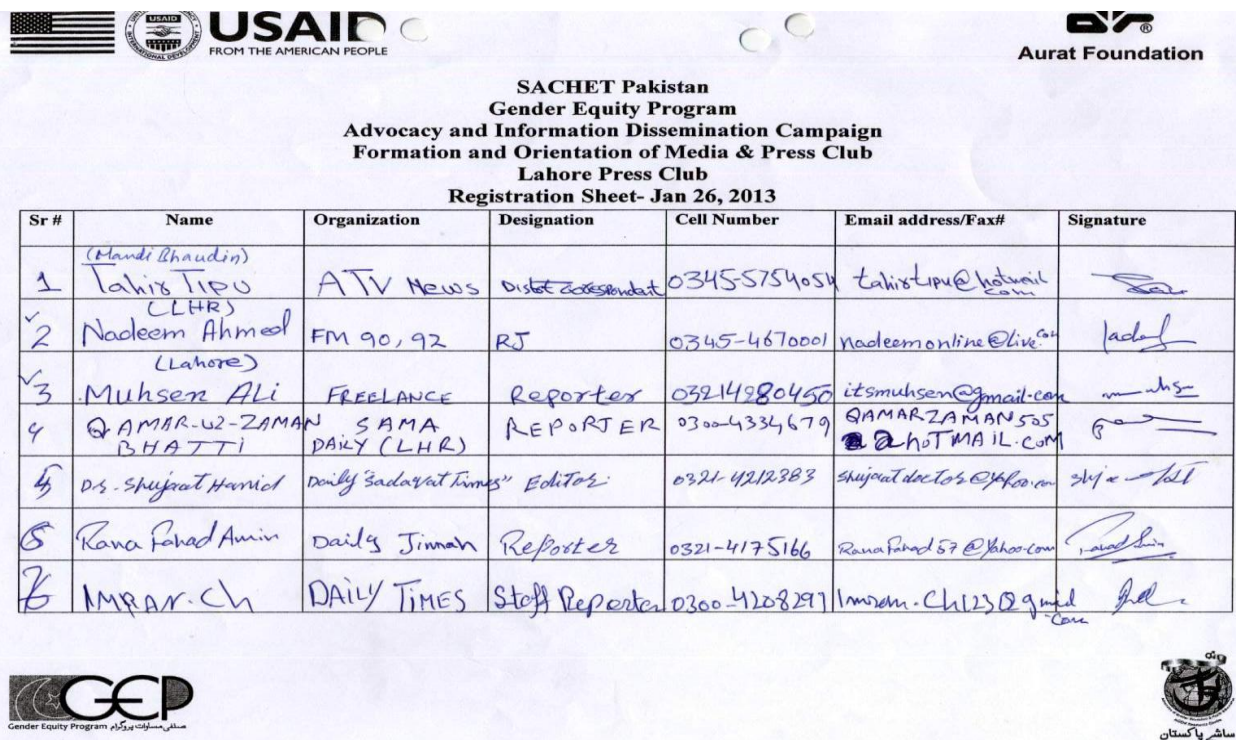 USAID
FROM THE AMERICAN PEOPLE
Aurat Foundation
SACHET Pakistan
Gender Equity Program
Advocacy and Information Dissemination Campaign
Formation and Orientation of Media & Press Club
Lahore Press Club
Registration Sheet- Jan 26, 2013
Sr # Name Organization Designation Cell Number Email address/Fax# Signature
(Mandi Bhaudin)
1 Tahir Tipu ATV News Distt Correspondent 0345-5754054 tahirtipu@hotmail
com
(LHR)
2 Nadeem Ahmed FM 90, 92 RJ 0345-4670001 nadeemonline@live.com
(Lahore)
3 Muhsen ALi FREELANCE Reporter 03214280450 itsmuhsen@gmail.com
4 QAMAR-UZ-ZAMAN SAMA REPORTER 0300-4334679 QAMARZAMAN505
BHATTi DAiLY (LHR) @hoTMAIL.COM
5 Dr. Shujaat Hamid Daily "Sadaqat Times" Editor 0321-4212383 Shujaatdoctor@yahoo.com
6 Rana Fahad Amin Daily Jinnah Reporter 0321-4175166 RanaFahad57@Yahoo.com
7 IMRAN.Ch DAiLY TiMES Staff Reporter 0300-4208297 Imran.Ch123@gmail
.Com
GEP
Gender Equity Program صنفی مساوات پروگرام
ساشے پاکستان